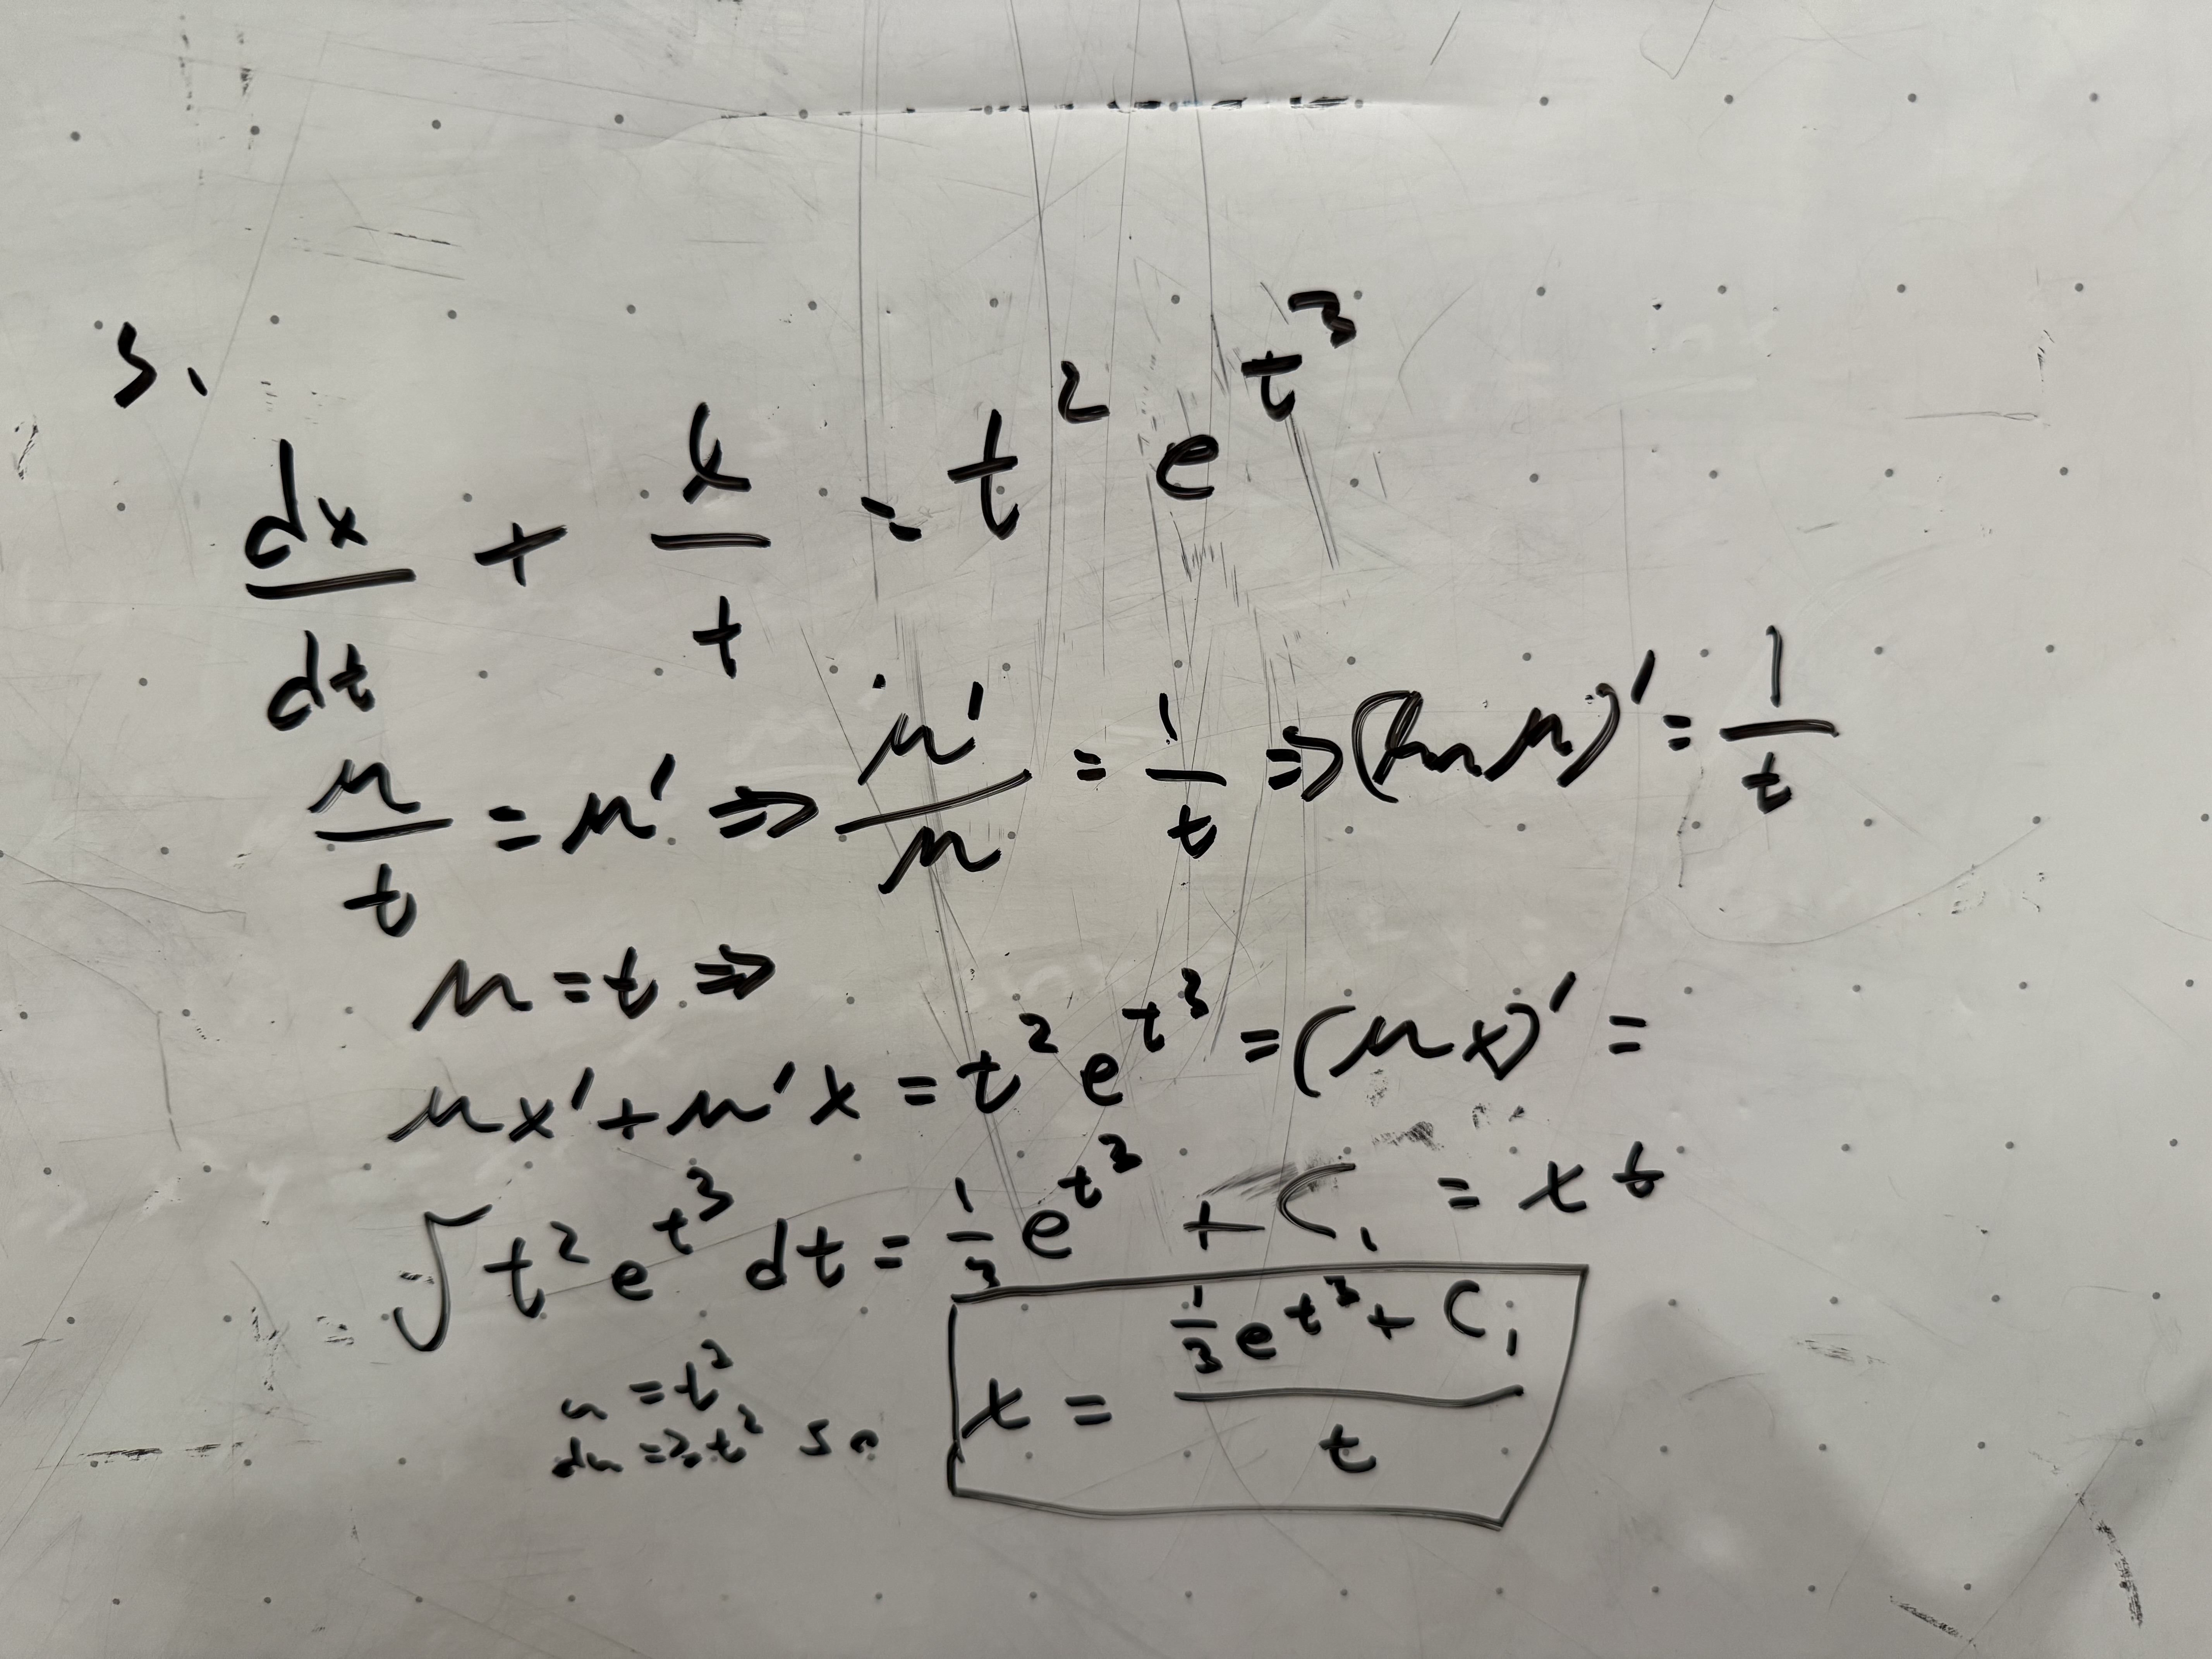 3.
dx/dt + x/t = t² e^(t³)
μ/t = μ' ⇒ μ'/μ = 1/t ⇒ (ln μ)' = 1/t
μ = t ⇒
μx' + μ'x = t² e^(t³) = (μx)' =
∫ t² e^(t³) dt = 1/3 e^(t³) + C₁ = x t
u = t²
du = 3t² so
x = (1/3 e^(t³) + C₁)/t